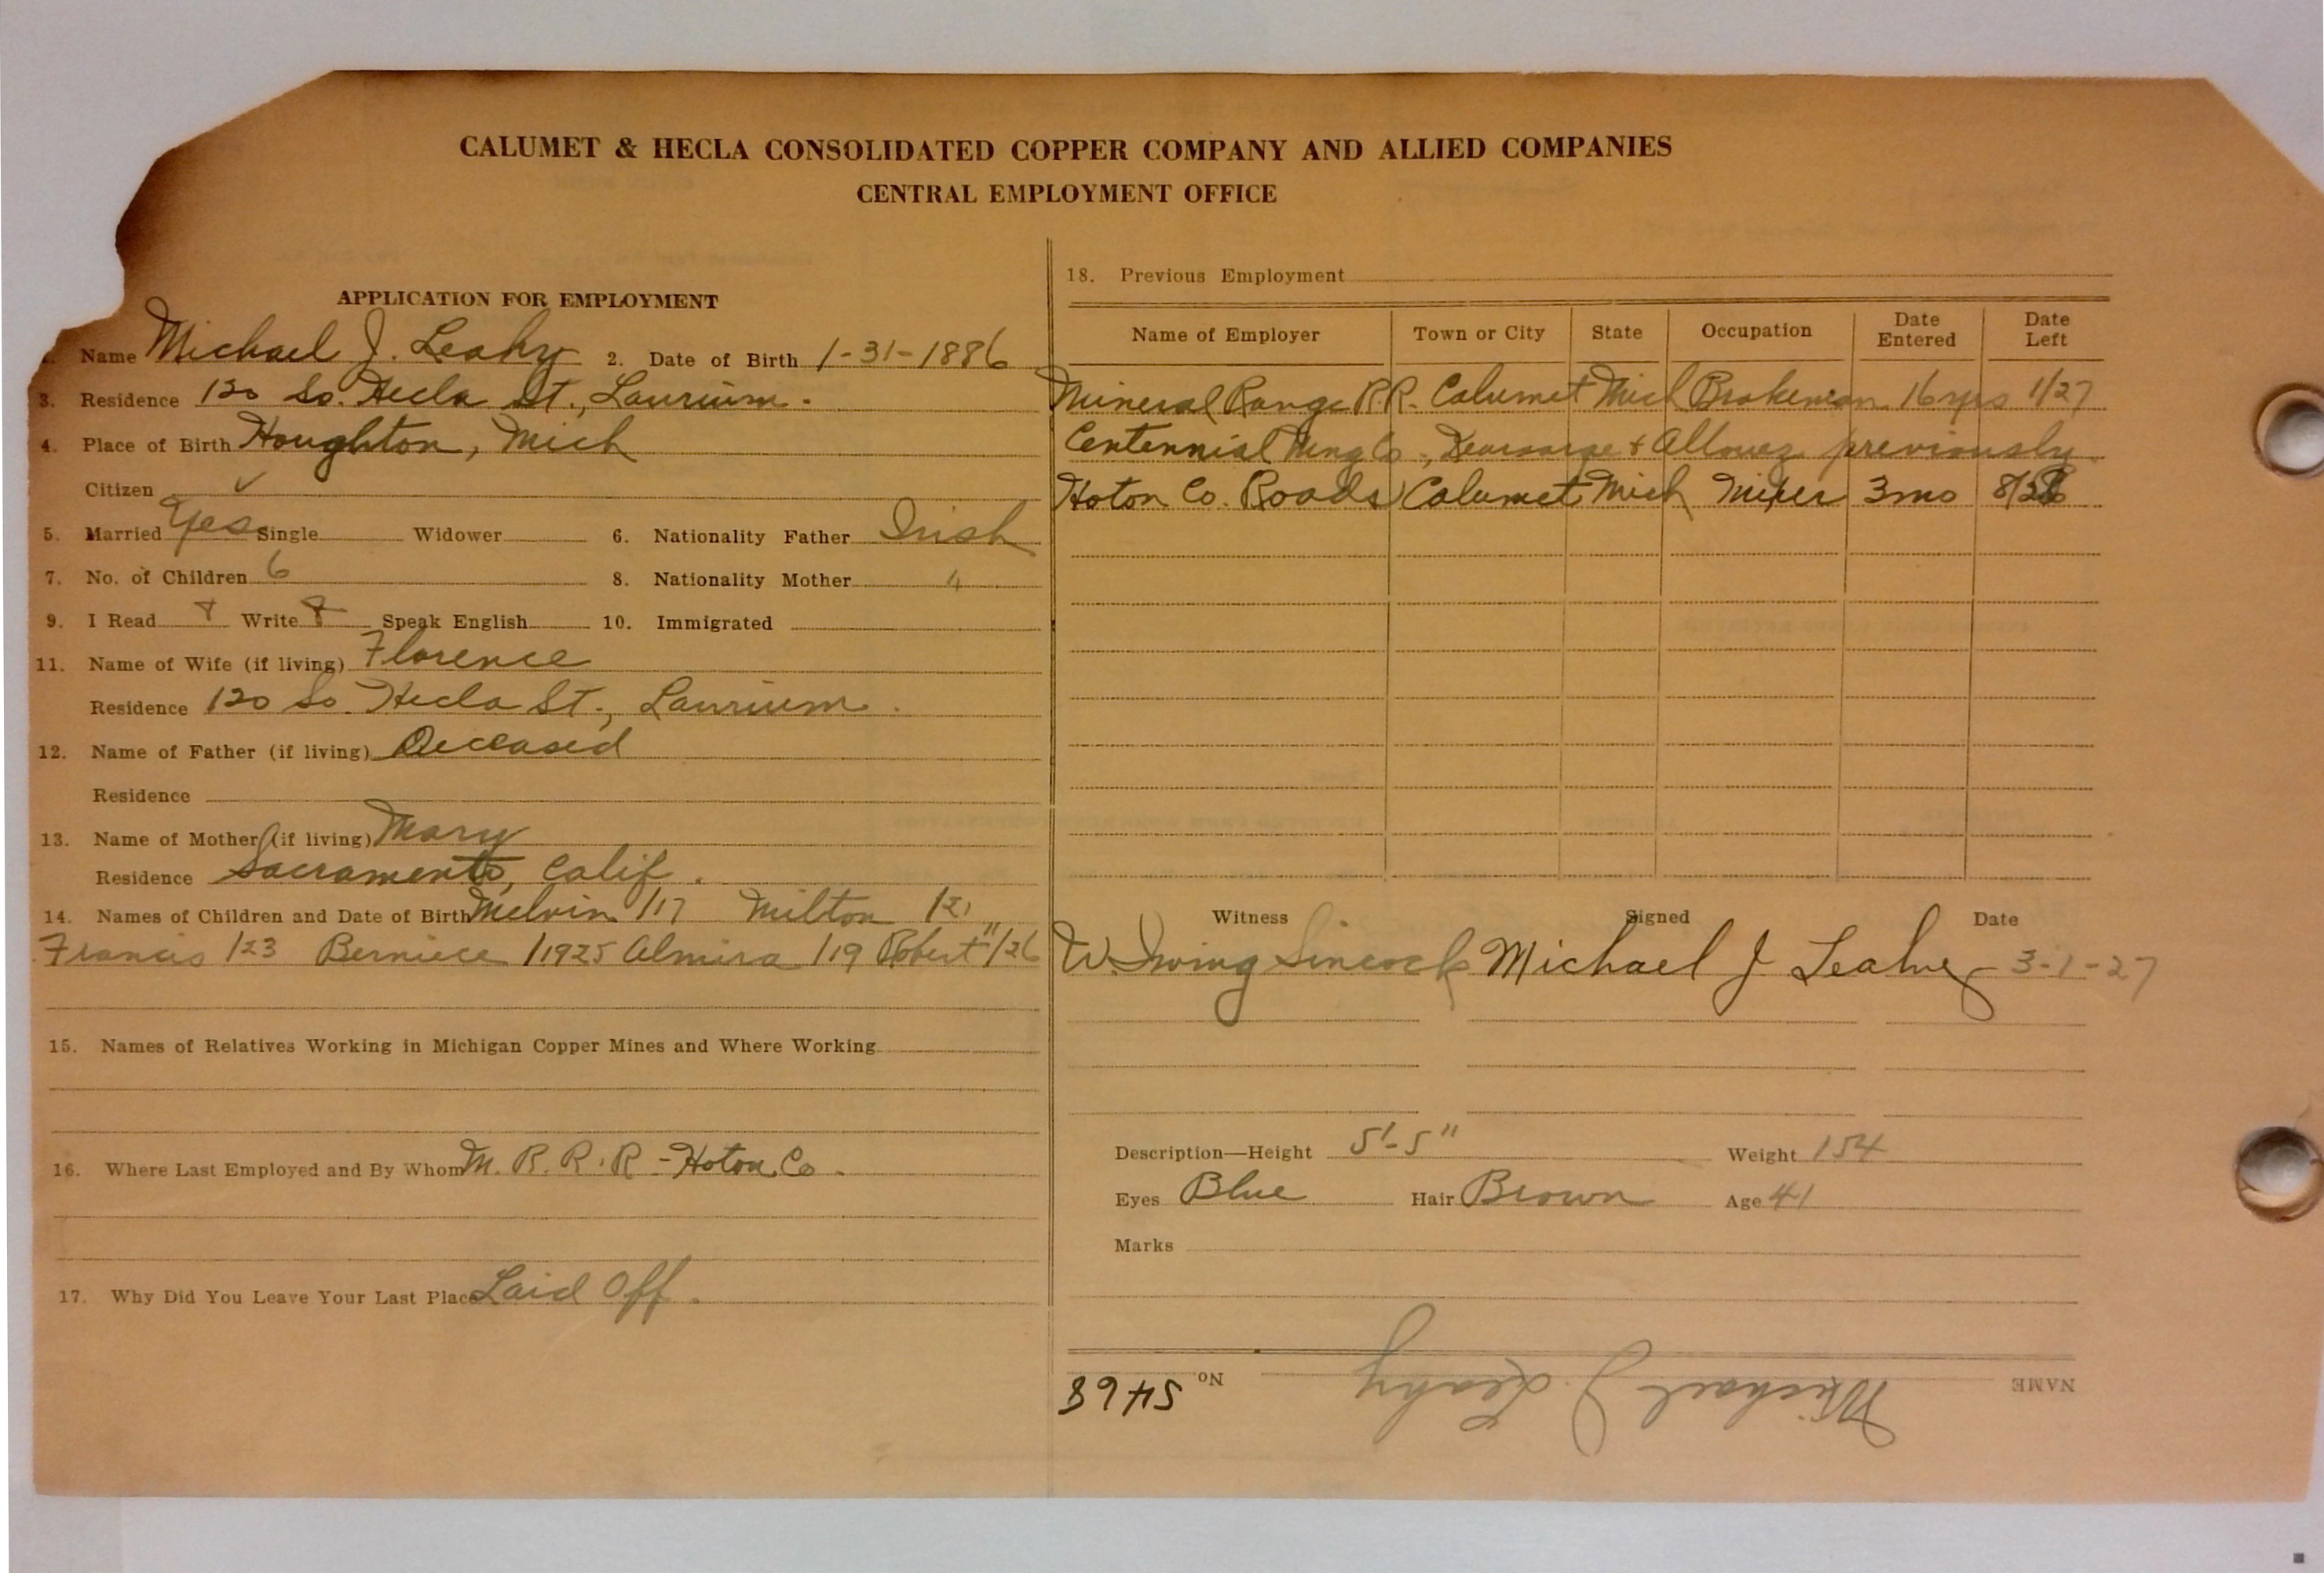 CALUMET & HECLA CONSOLIDATED COPPER COMPANY AND ALLIED COMPANIES
CENTRAL EMPLOYMENT OFFICE
APPLICATION FOR EMPLOYMENT
Name Michael J. Leahy 2. Date of Birth 1-31-1886
3. Residence 120 So. Hecla St., Laurium.
4. Place of Birth Houghton, Mich
Citizen ✓
5. Married Yes Single Widower 6. Nationality Father Irish
7. No. of Children 6 8. Nationality Mother "
9. I Read Write Speak English 10. Immigrated
11. Name of Wife (if living) Florence
Residence 120 So. Hecla St., Laurium.
12. Name of Father (if living) Deceased
Residence
13. Name of Mother (if living) Mary
Residence Sacramento, Calif.
14. Names of Children and Date of Birth Melvin /17 Milton /21
Francis /23 Berniece /1925 Almira /19 Robert "/26
15. Names of Relatives Working in Michigan Copper Mines and Where Working
16. Where Last Employed and By Whom M. R. R. R - Hoton Co.
17. Why Did You Leave Your Last Place Laid Off.
18. Previous Employment
Name of Employer Town or City State Occupation Date Entered Date Left
Mineral Range R.R. Calumet Mich Brakeman 16 yrs 1/27
Centennial Mng Co., Kearsarge & Allouez previously
Hoton Co. Roads Calumet Mich 3 mo
Witness Signed Date
W. Irving Sincock Michael J Leahy 3-1-27
Description—Height 5'-5" Weight 154
Eyes Blue Hair Brown Age 41
Marks
NAME Michael J. Leahy No. 5468